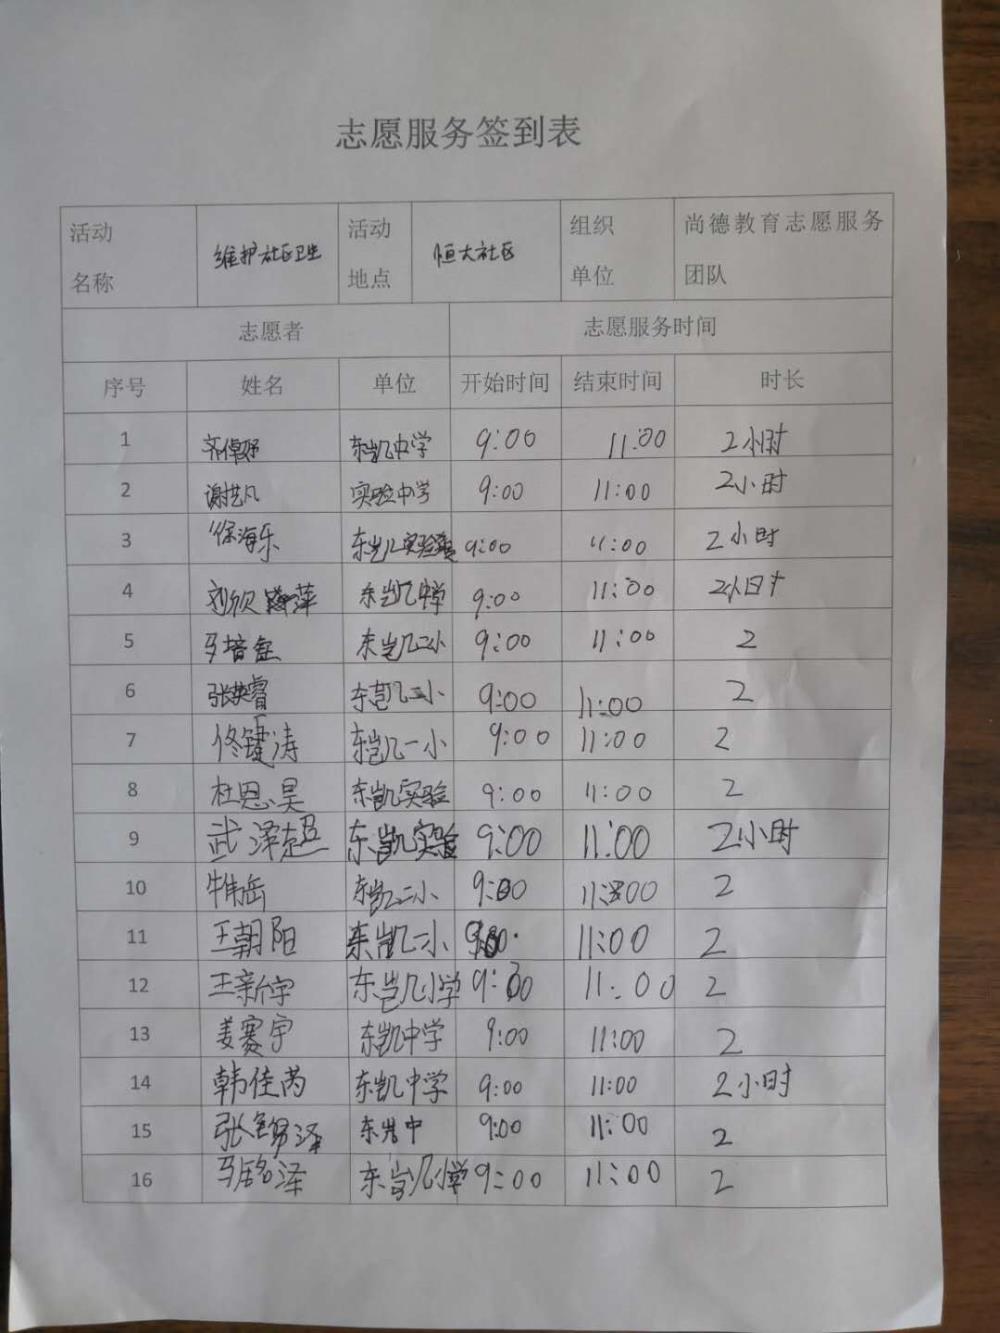 志愿服务签到表
活动名称 维护社区卫生 活动地点 恒大社区 组织单位 尚德教育志愿服务团队
志愿者 志愿服务时间
序号 姓名 单位 开始时间 结束时间 时长
1 东凯中学 9:00 11:00 2小时
2 谢艺凡 实验中学 9:00 11:00 2小时
3 徐海乐 东凯实验 9:00 11:00 2小时
4 刘欣萍 东凯中学 9:00 11:00 2小时
5 东凯二小 9:00 11:00 2
6 张英睿 东凯二小 9:00 11:00 2
7 佟键涛 东凯一小 9:00 11:00 2
8 杜恩昊 东凯实验 9:00 11:00 2
9 武泽超 东凯实验 9:00 11:00 2小时
10 牛伟岳 东凯二小 9:00 11:00 2
11 王朝阳 东凯二小 9:00 11:00 2
12 王新宇 东凯小学 9:00 11:00 2
13 姜赛宇 东凯中学 9:00 11:00 2
14 韩佳芮 东凯中学 9:00 11:00 2小时
15 东凯中 9:00 11:00 2
16 马铭泽 东凯小学 9:00 11:00 2